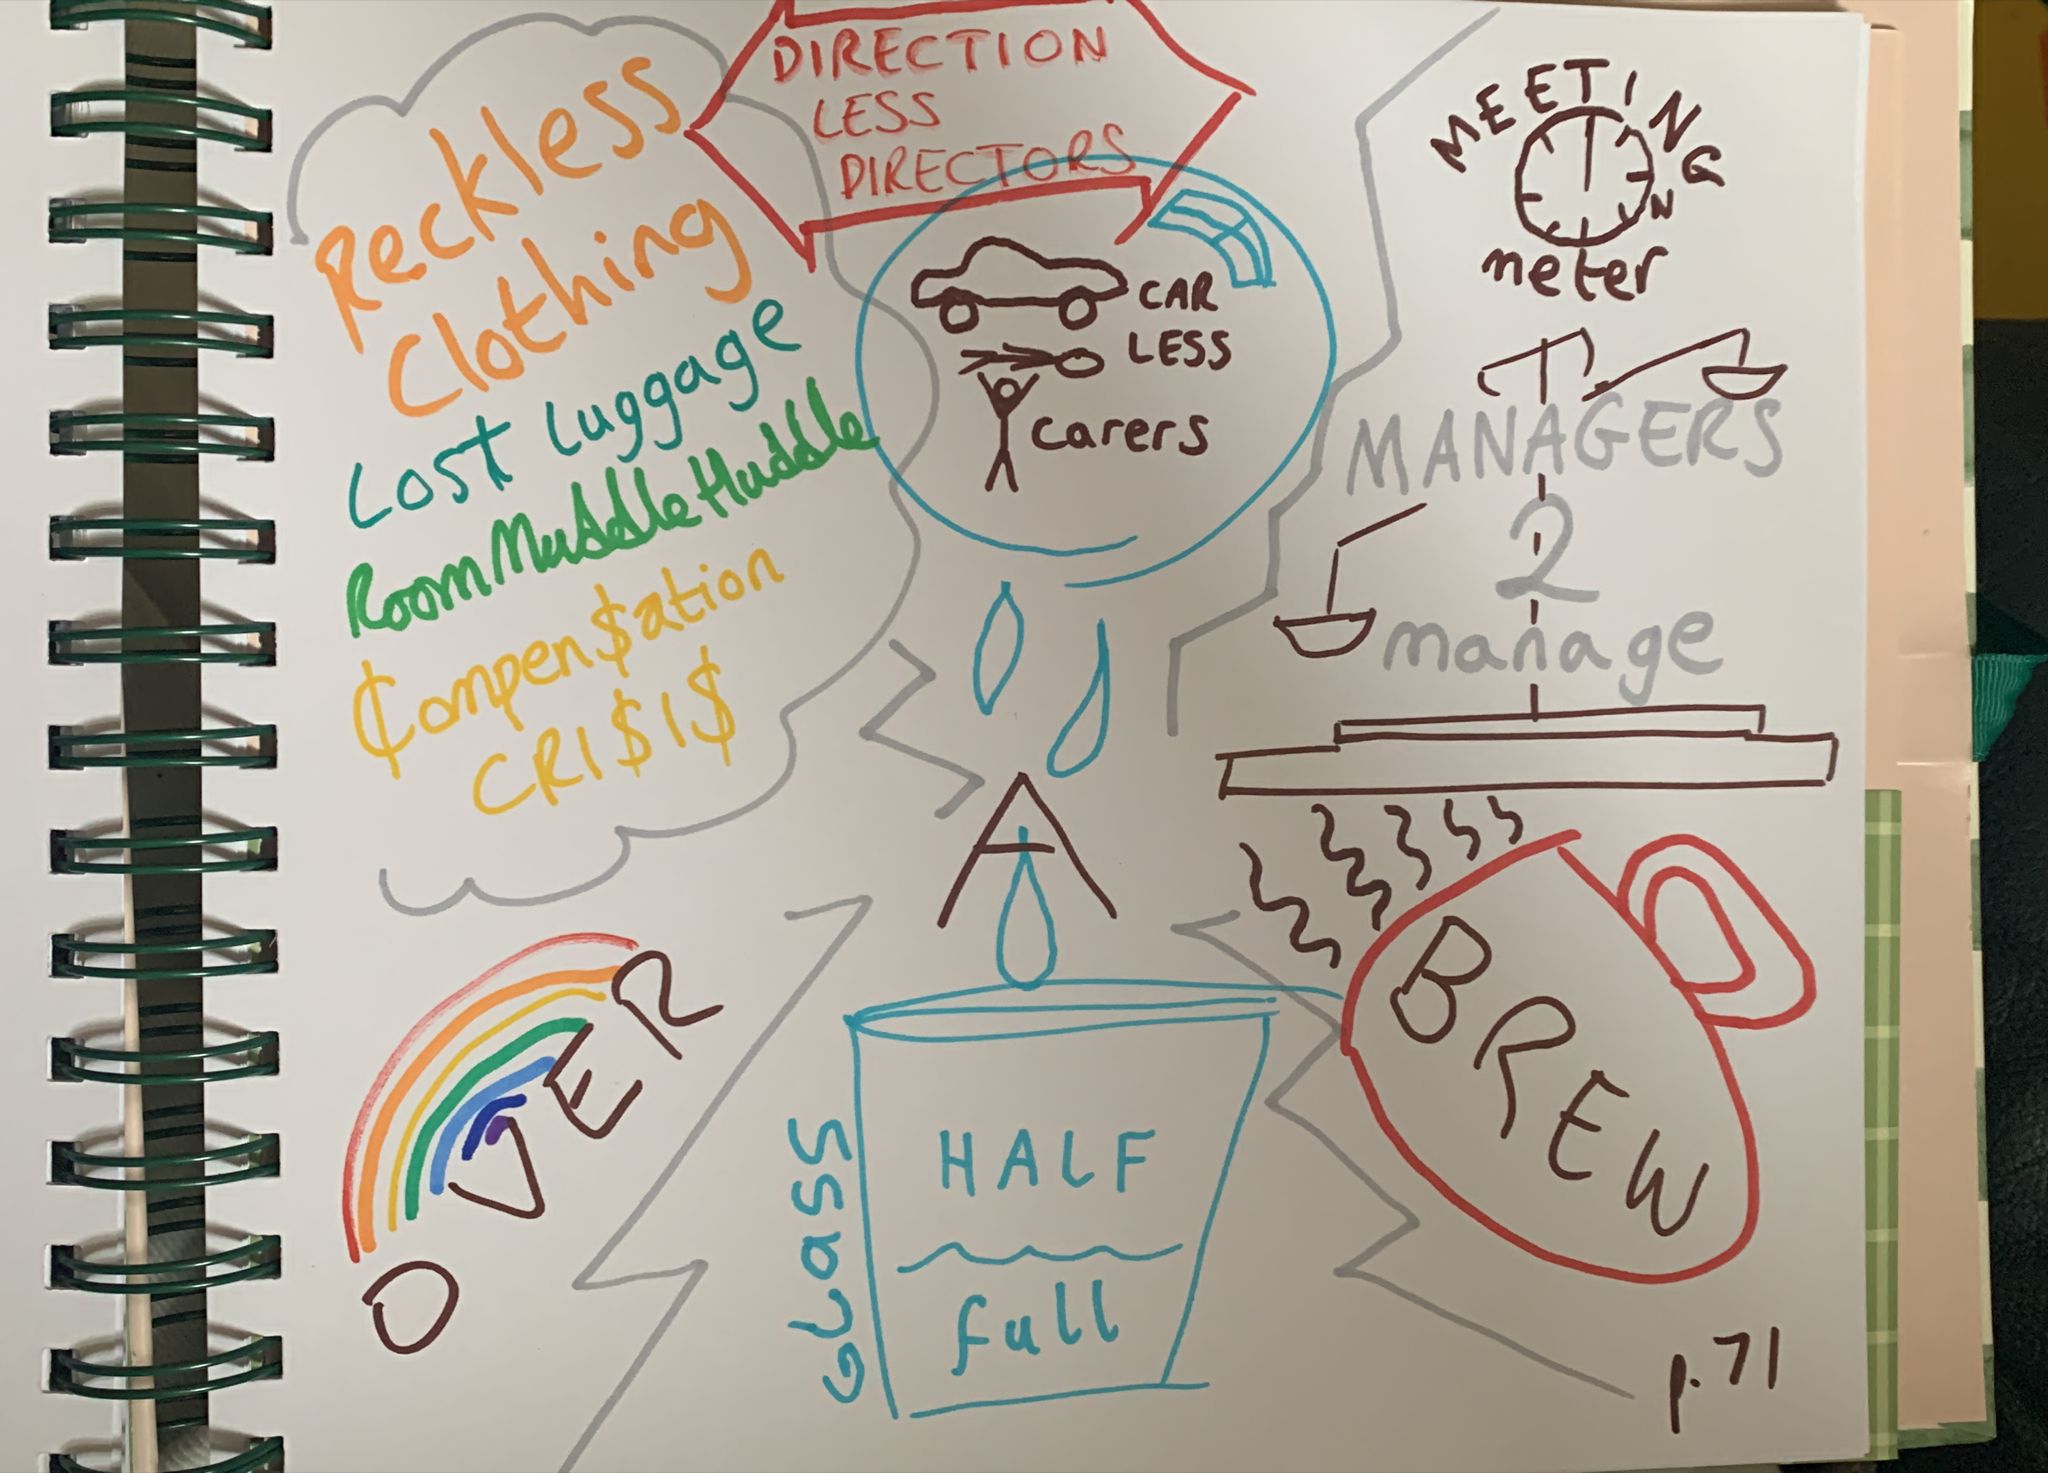 DIRECTION
LESS
DIRECTORS
Reckless
Clothing
Lost Luggage
RoomMuddleHuddle
₵ompen$ation
CRI$I$
CAR
LESS
carers
MEETING
N
meter
MANAGERS
2
manage
A
OVER
GLASS
HALF
full
BREW
p.71